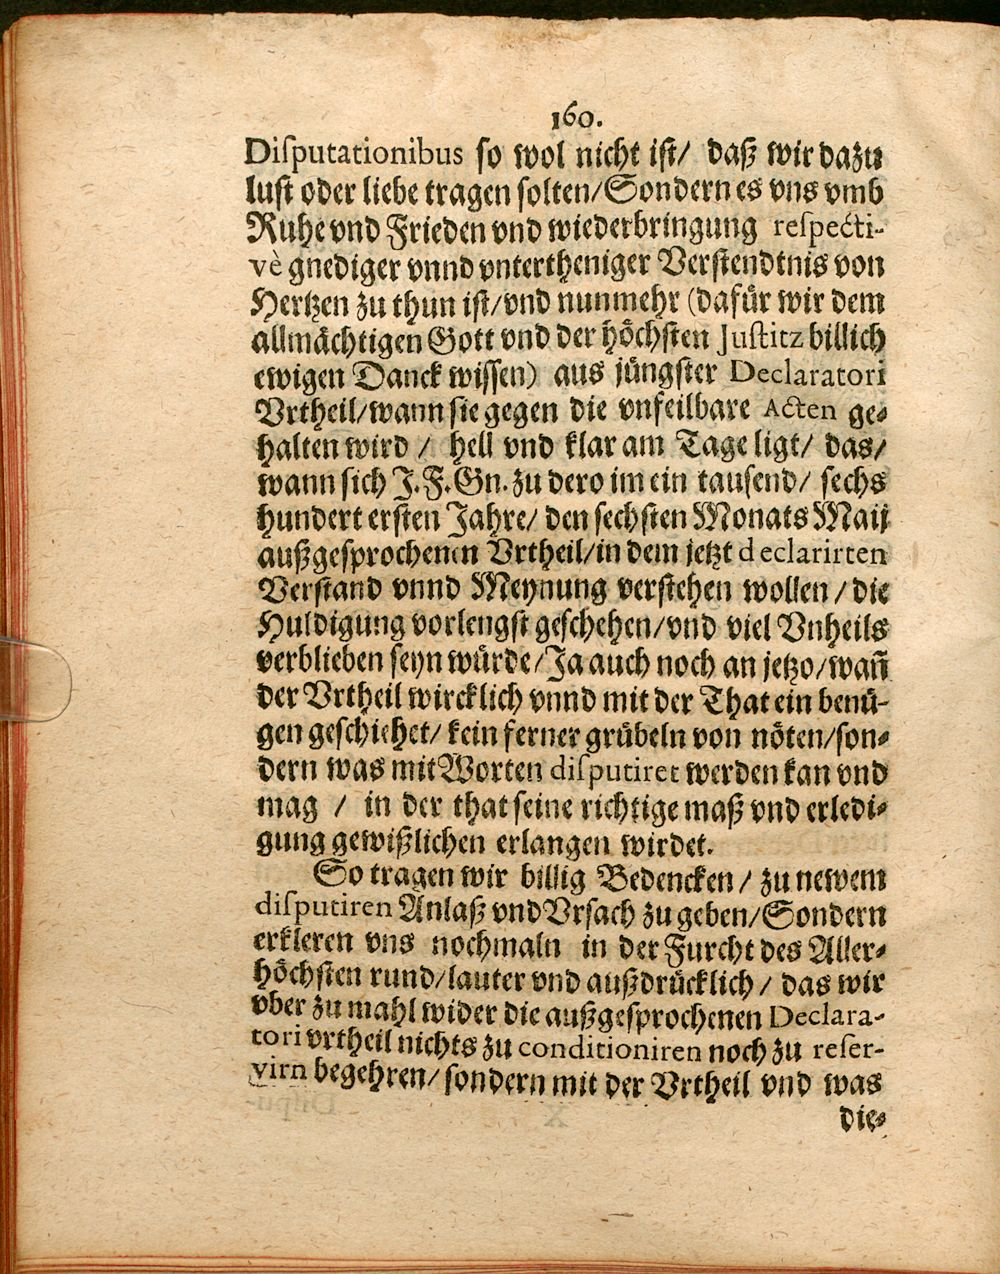 160.
Disputationibus so wol nicht ist/ daß wir dazu
lust oder liebe tragen solten/Sondern es vns vmb
Ruhe vnd Frieden vnd wiederbringung respecti-
vè gnediger vnnd vntertheniger Verstendtnis von
Hertzen zu thun ist/vnd nunmehr (dafür wir dem
allmächtigen Gott vnd der höchsten Justitz billich
ewigen Danck wissen) aus jüngster Declaratori
Vrtheil/wann sie gegen die vnfeilbare Acten ge-
halten wird / hell vnd klar am Tage ligt/ das/
wann sich J.F.Gn. zu dero im ein tausend/ sechs
hundert ersten Jahre/ den sechsten Monats Maij
außgesprochenen Vrtheil/in dem jetzt declarirten
Verstand vnnd Meynung verstehen wollen / die
Huldigung vorlengst geschehen/vnd viel Vnheils
verblieben seyn würde/Ja auch noch an jetzo/wañ
der Vrtheil wircklich vnnd mit der That ein benü-
gen geschiehet/ kein ferner grübeln von nöten/son-
dern was mit Worten disputiret werden kan vnd
mag / in der that seine richtige maß vnd erledi-
gung gewißlichen erlangen wirdet.
So tragen wir billig Bedencken / zu newem
disputiren Anlaß vnd Vrsach zu geben/Sondern
erkleren vns nochmaln in der Furcht des Aller-
höchsten rund/lauter vnd außdrücklich / das wir
vber zu mahl wider die außgesprochenen Declara-
tori vrtheil nichts zu conditioniren noch zu reser-
virn begehren/ sondern mit der Vrtheil vnd was
die-